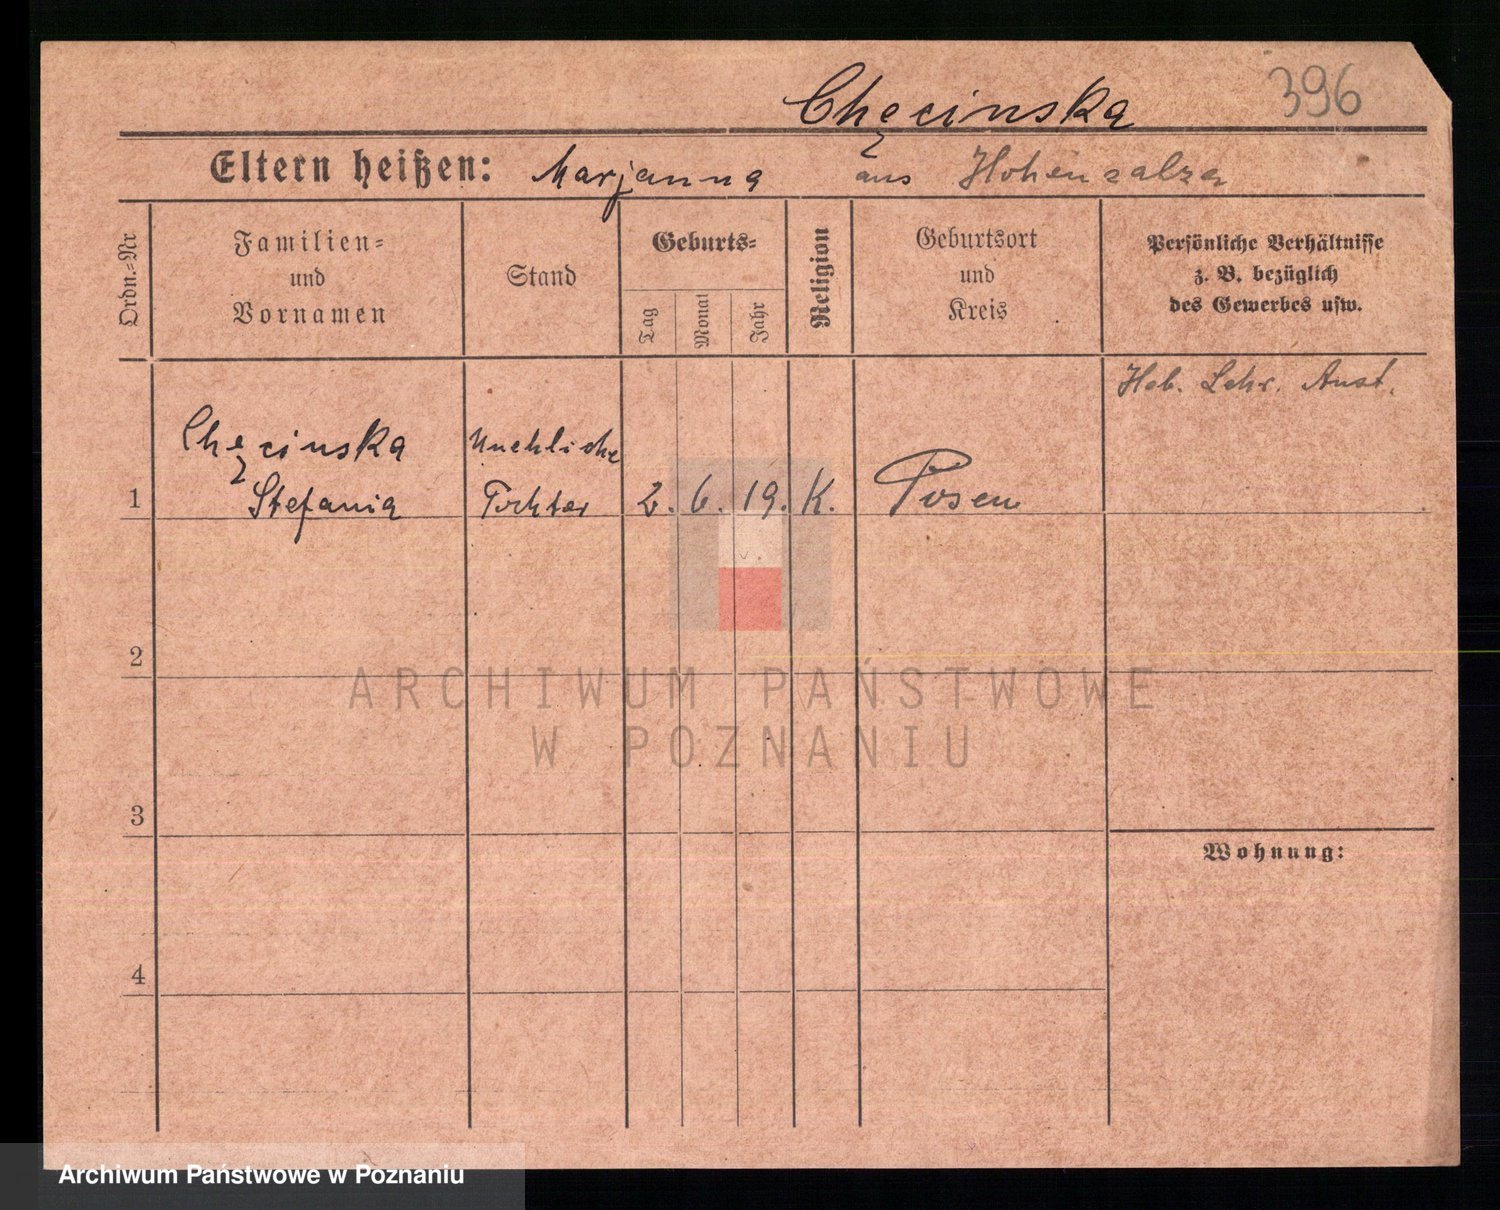 Chęcinska
396
Eltern heißen: Marjanna aus Hohensalza
Ordn.=Nr
Familien=
und
Vornamen
Stand
Geburts=
Tag
Monat
Jahr
Religion
Geburtsort
und
Kreis
Persönliche Verhältnisse
z. B. bezüglich
des Gewerbes usw.
Heb. Lehr. Anst.
Chęcinska Unehliche
1 Stefania Tochter 2. 6. 19. K. Posen
2
ARCHIWUM PAŃSTWOWE
W POZNANIU
3
Wohnung:
4
Archiwum Państwowe w Poznaniu